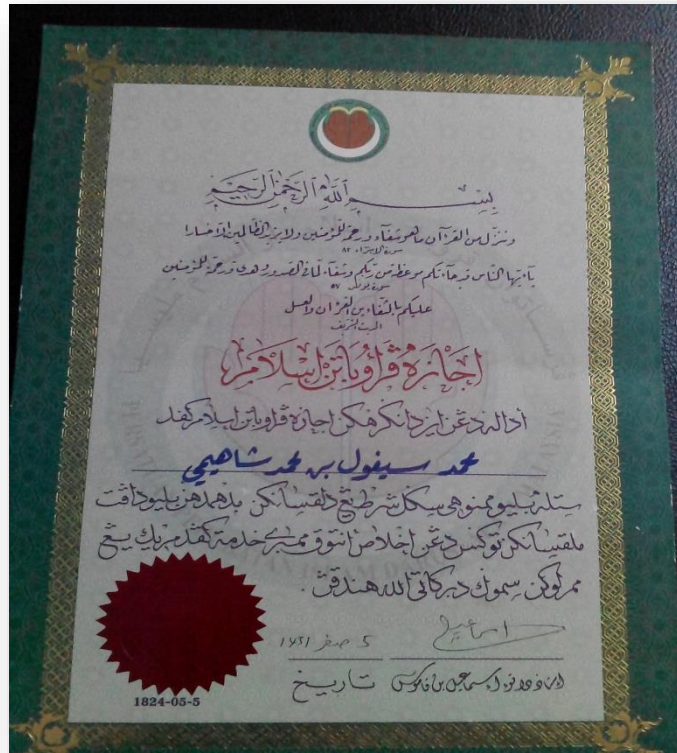 بِسْمِ اللَّهِ الرَّحْمَنِ الرَّحِيمِ
وننزل من القرآن ما هو شفاء ورحمة للمؤمنين ولا يزيد الظالمين الا خسارا
سورة الاسراء ٨٢
يأيها الناس قد جاءتكم موعظة من ربكم وشفاء لما في الصدور وهدى ورحمة للمؤمنين
سورة يونس ٥٧
عليكم بالشفاءين القرآن والعسل
الحديث الشريف
اجازه ڤراوباتن اسلام
اداله دڠن اين دانڬرهكن اجازه ڤراوباتن اسلام كڤد
محمد سيفول بن محمد شاهيمي
ستله بليو ممنوهي سڬل شرط يڠ دلقساناكن
ملقساناكن توڬس دڠن اخلاص انتوق ممبري خدمة كڤد مريك يڠ
ممرلوكن سموڬ دبركاتي الله هندقڽ.
٥ صفر
تاريخ
1824-05-5